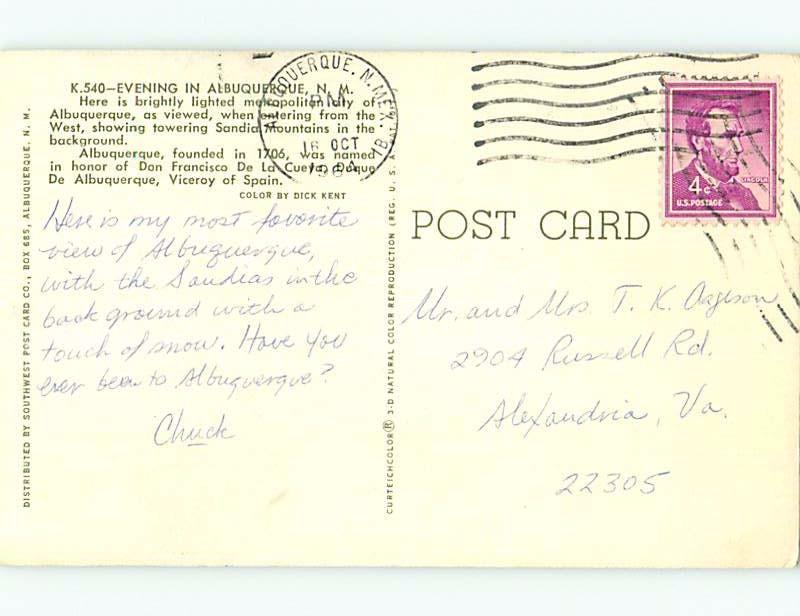 K.540—EVENING IN ALBUQUERQUE, N. M.
Here is brightly lighted metropolitan city of
Albuquerque, as viewed, when entering from the
West, showing towering Sandia Mountains in the
background.
Albuquerque, founded in 1706, was named
in honor of Don Francisco De La Cueva Duque
De Albuquerque, Viceroy of Spain.
COLOR BY DICK KENT
Here is my most favorite
view of Albuquerque,
with the Sandias in the
back ground with a
touch of snow. Have you
ever been to Albuquerque?
Chuck
DISTRIBUTED BY SOUTHWEST POST CARD CO., BOX 685, ALBUQUERQUE, N. M.
CURTEICHCOLOR® 3-D NATURAL COLOR REPRODUCTION (REG. U. S. A.
ALBUQUERQUE, N. MEX.
PM
16 OCT
POST CARD
LINCOLN
4c
U.S. POSTAGE
Mr. and Mrs. T. K.
2904 Russell Rd.
Alexandria, Va.
22305